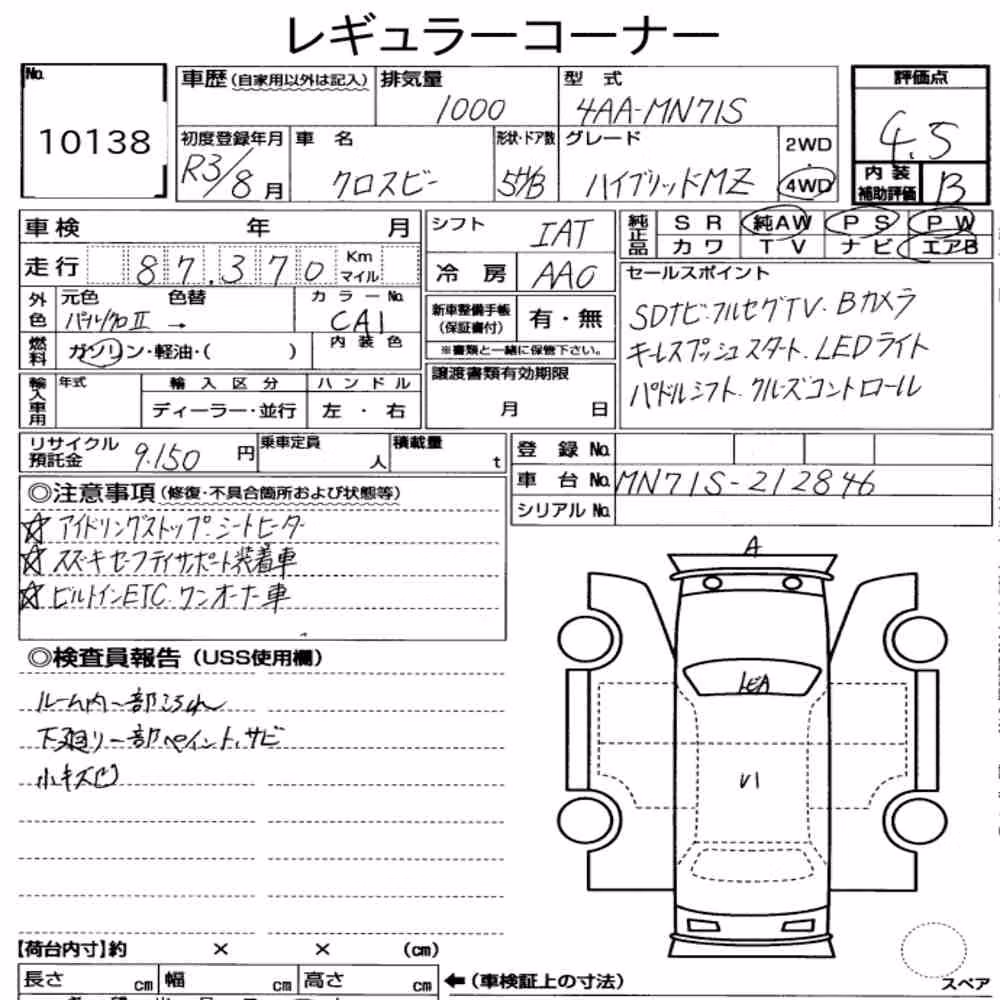 レギュラーコーナー
No.
10138
車歴(自家用以外は記入) 排気量 1000 型式 4AA-MN71S
初度登録年月 R3/8月 車名 クロスビー 形状・ドア数 5H/B グレード ハイブリッドMZ 2WD・4WD
評価点 4.5
内装補助評価 B
車検 年 月
走行 87,370 Km マイル
外色 元色 色替 カラーNo.
→ CA1
燃料 ガソリン・軽油・( ) 内装色
輸入車用 年式 輸入区分 ハンドル
ディーラー・並行 左・右
シフト IAT
冷房 AAC
新車整備手帳(保証書付) 有・無
※書類と一緒に保管下さい。
譲渡書類有効期限
月 日
純正品 SR 純AW PS PW
カワ TV ナビ エアB
セールスポイント
SDナビ・フルセグTV・Bカメラ
キーレスプッシュスタート・LEDライト
パドルシフト・クルーズコントロール
リサイクル預託金 9,150円 乗車定員 人 積載量 t
登録No.
車台No. MN71S-212846
シリアルNo.
◎注意事項(修復・不具合箇所および状態等)
☆アイドリングストップ・シートヒーター
☆スズキセーフティサポート装着車
☆ビルトインETC・ワンオーナー車
◎検査員報告(USS使用欄)
ルーム内一部汚れ
下廻り一部ペイント、サビ
小キズ凹
A
U1
【荷台内寸】約 × × (cm)
長さ cm 幅 cm 高さ cm ←(車検証上の寸法)
スペア